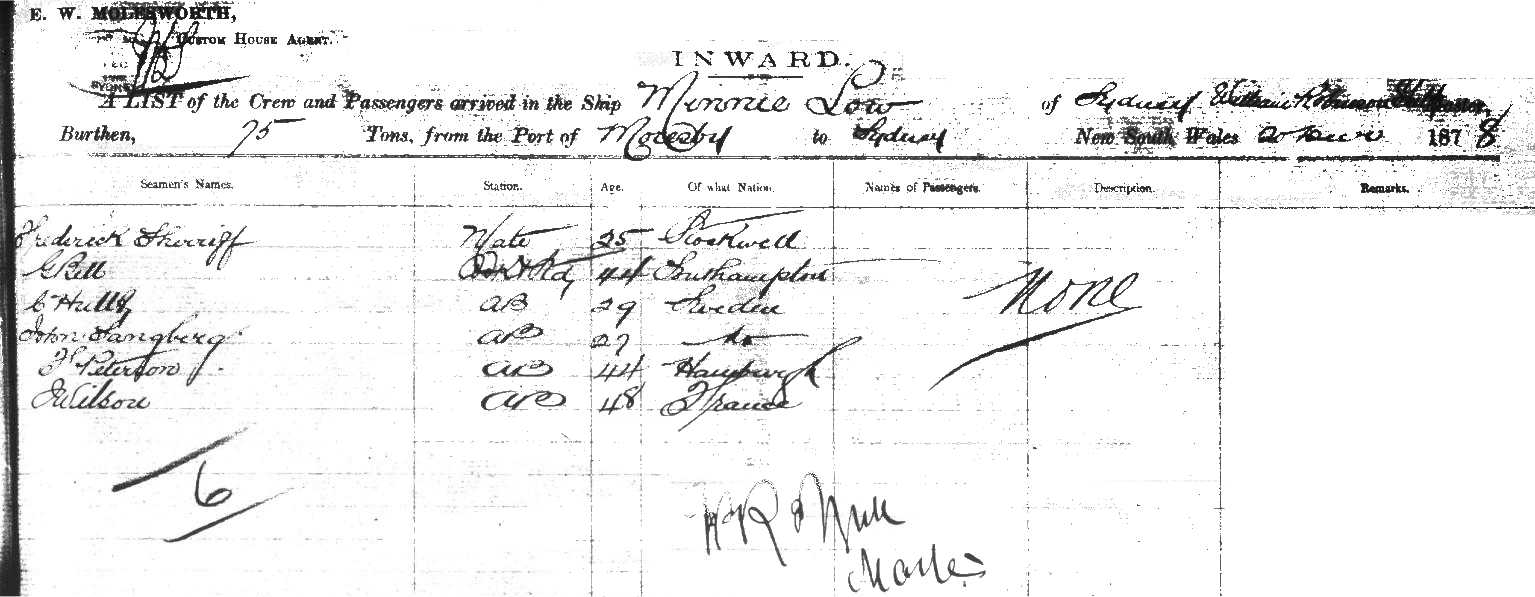 E. W. MOLESWORTH,
CUSTOM HOUSE AGENT.
INWARD.
A LIST of the Crew and Passengers arrived in the Ship Minnie Low of Sydney William Robinson Master,
Burthen, 75 Tons, from the Port of Moresby to Sydney New South Wales 1878
Seamen's Names. Station. Age. Of what Nation. Names of Passengers. Description. Remarks.
Frederick Sherriff Mate 25 Stockwell
G Bell 44 Southampton
C Hully AB 29 Sweden
John Sangberg AB 27 do
F Peterson AB 44 Hamburgh
J Wilson AB 48 France
None
6
W R
Master